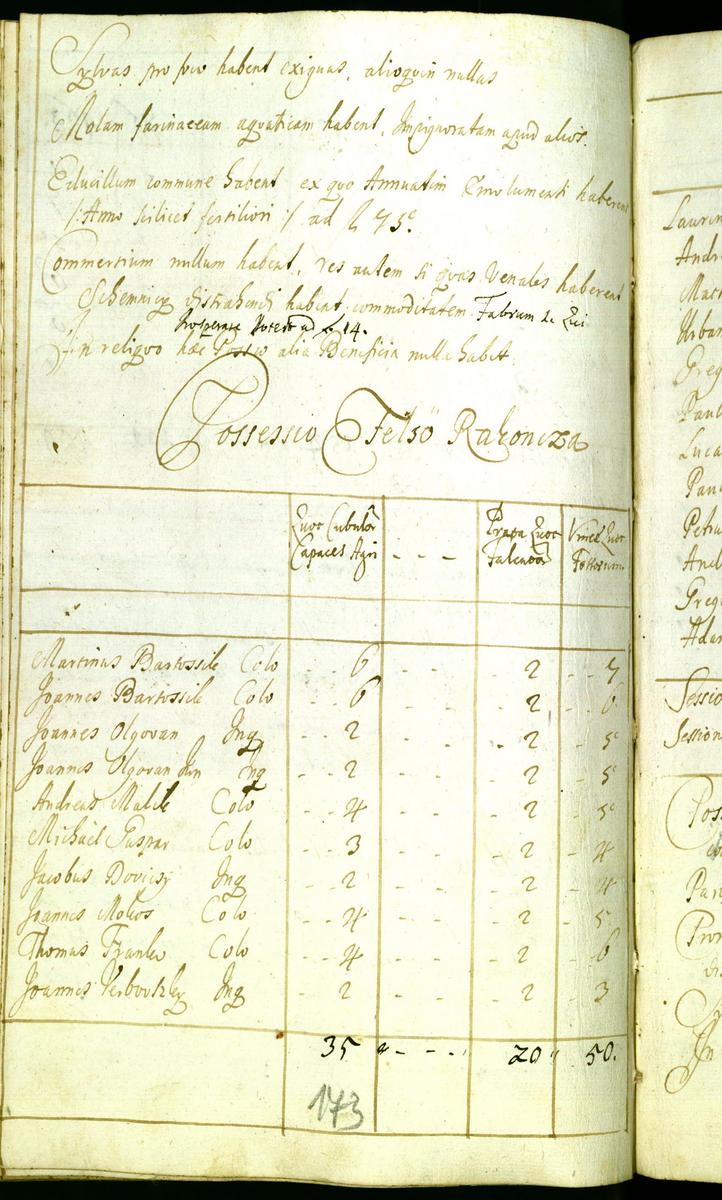 Sylvas pro foco habent exiguas, alioquin nullas
Molam farinaceam aquaticam habent, Impignoratam apud alios.
Educillum commune habent ex quo Annuatim Emolumenti haberent
/: Anno scilicet fertiliori :/ ad f 75.
Commertium nullum habent, res autem si quas Venales haberent
Schemnicii distrahendi habent commoditatem Fabrum
Prosperare Potest ad f 14.
In reliquo haec Possessio alia Beneficia nulla habet
Possessio Felsö Rakoncza
Quot Cubulor Capaces Agri - - - Prata Quot Falcator Vineae Quot Fossorum
Martinus Bartossik Colo - - 6 - - 2 - - 7
Joannes Bartossik Colo - - 6 - - 2 - - 6
Joannes Olgovan Inq - - 2 - - 2 - - 5
Joannes Olgovan Jun Inq - - 2 - - 2 - 5
Andreas Malik Colo - - 4 - - 2 - 5
Michael Gaspar Colo - - 3 - - 2 - 4
Jacobus Doviczy Inq - - 2 - - 2 - 4
Joannes Molios Colo - - 4 - - 2 - 5
Thomas Franko Colo - - 4 - - 2 - 6
Joannes Verbovszky Inq - - 2 - - 2 - 3
35 - - - 20 50.
173
Laurin
Andre
Mart
Urban
Greg
Paul
Luca
Paul
Petru
And
Greg
Adam
Sessio
Session
Poss
Par
Pro
In